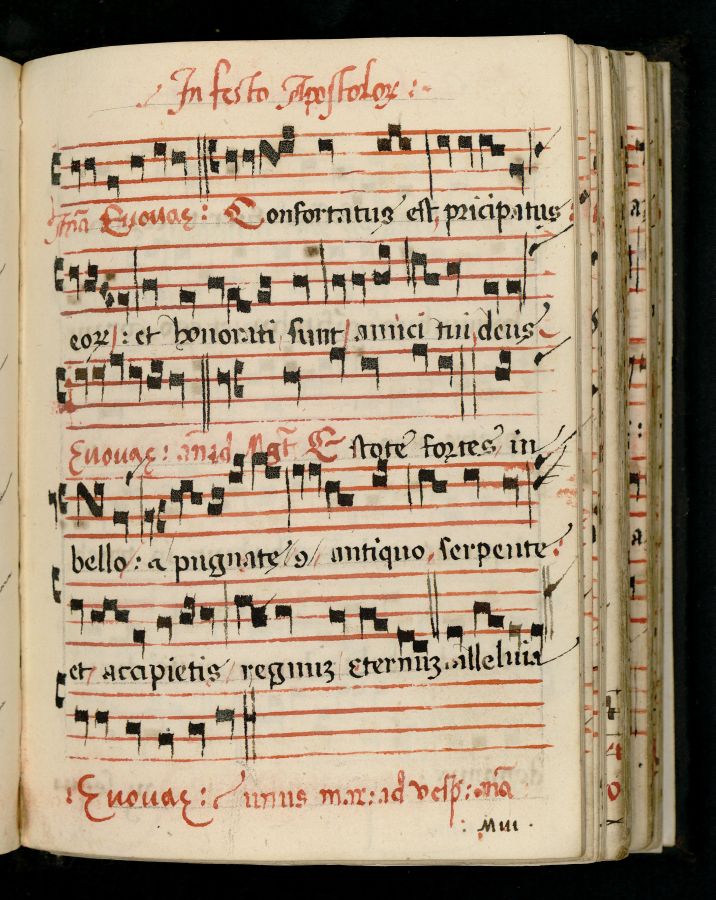 In festo Apostoloꝝ :~
Añā Euouae : Confortatus est pricipatus :
eoꝝ : et honorati sunt amici tui deus
Euouae : añā ad Mg̃t Estote fortes in
bello : a pugnate ꝯ antiquo serpente :
et accipietis regnuʒ eternuʒ alleluia
Euouae : unius mar : ad vesp : añā
: Mui .